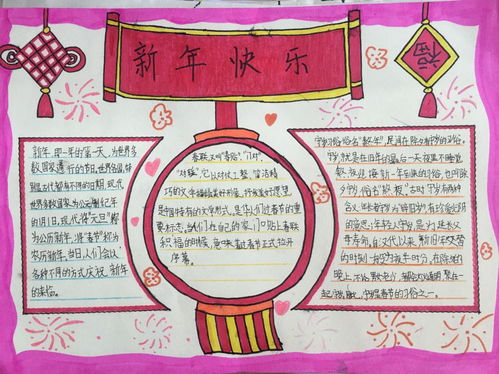 新年快乐
福
新年,即一年的第一天,为世界多
数国家通行的节日。世界各国,特
别是古代都有不同的日期,现代
世界多数国家为公元制纪年
的1月1日。现代将“元旦”称
为公历新年,将“春节”称为
农历新年。当日,人们会以
各种不同的方式庆祝新年
的来临。
春联又叫“春贴”、“门对”、
“对联”,它以对仗工整、简洁精
巧的文字描绘美好形象,抒发美好愿望,
是中国特有的文学形式,是华人们过春节的重
要标志。当人们在自己的家门口贴上春联
积福的时候,意味着过春节正式拉开
序幕。
守岁习俗俗名“熬年”,民间在除夕有守岁的习俗。
守岁,就是在旧年的最后一天夜里不睡觉
熬夜迎接新一年到来的习俗,也叫除
夕守岁,俗名“熬夜”。古时守岁有两种
含义:年长者守岁为“辞旧岁”,有珍爱光阴
的意思;年轻人守岁,是为延长父
母寿命。自汉代以来,新旧年交替
的时刻一般为夜半时分。在除夕的
晚上,不论男女老少,都会灯火通明,聚在一
起守岁。守岁是春节的习俗之一。